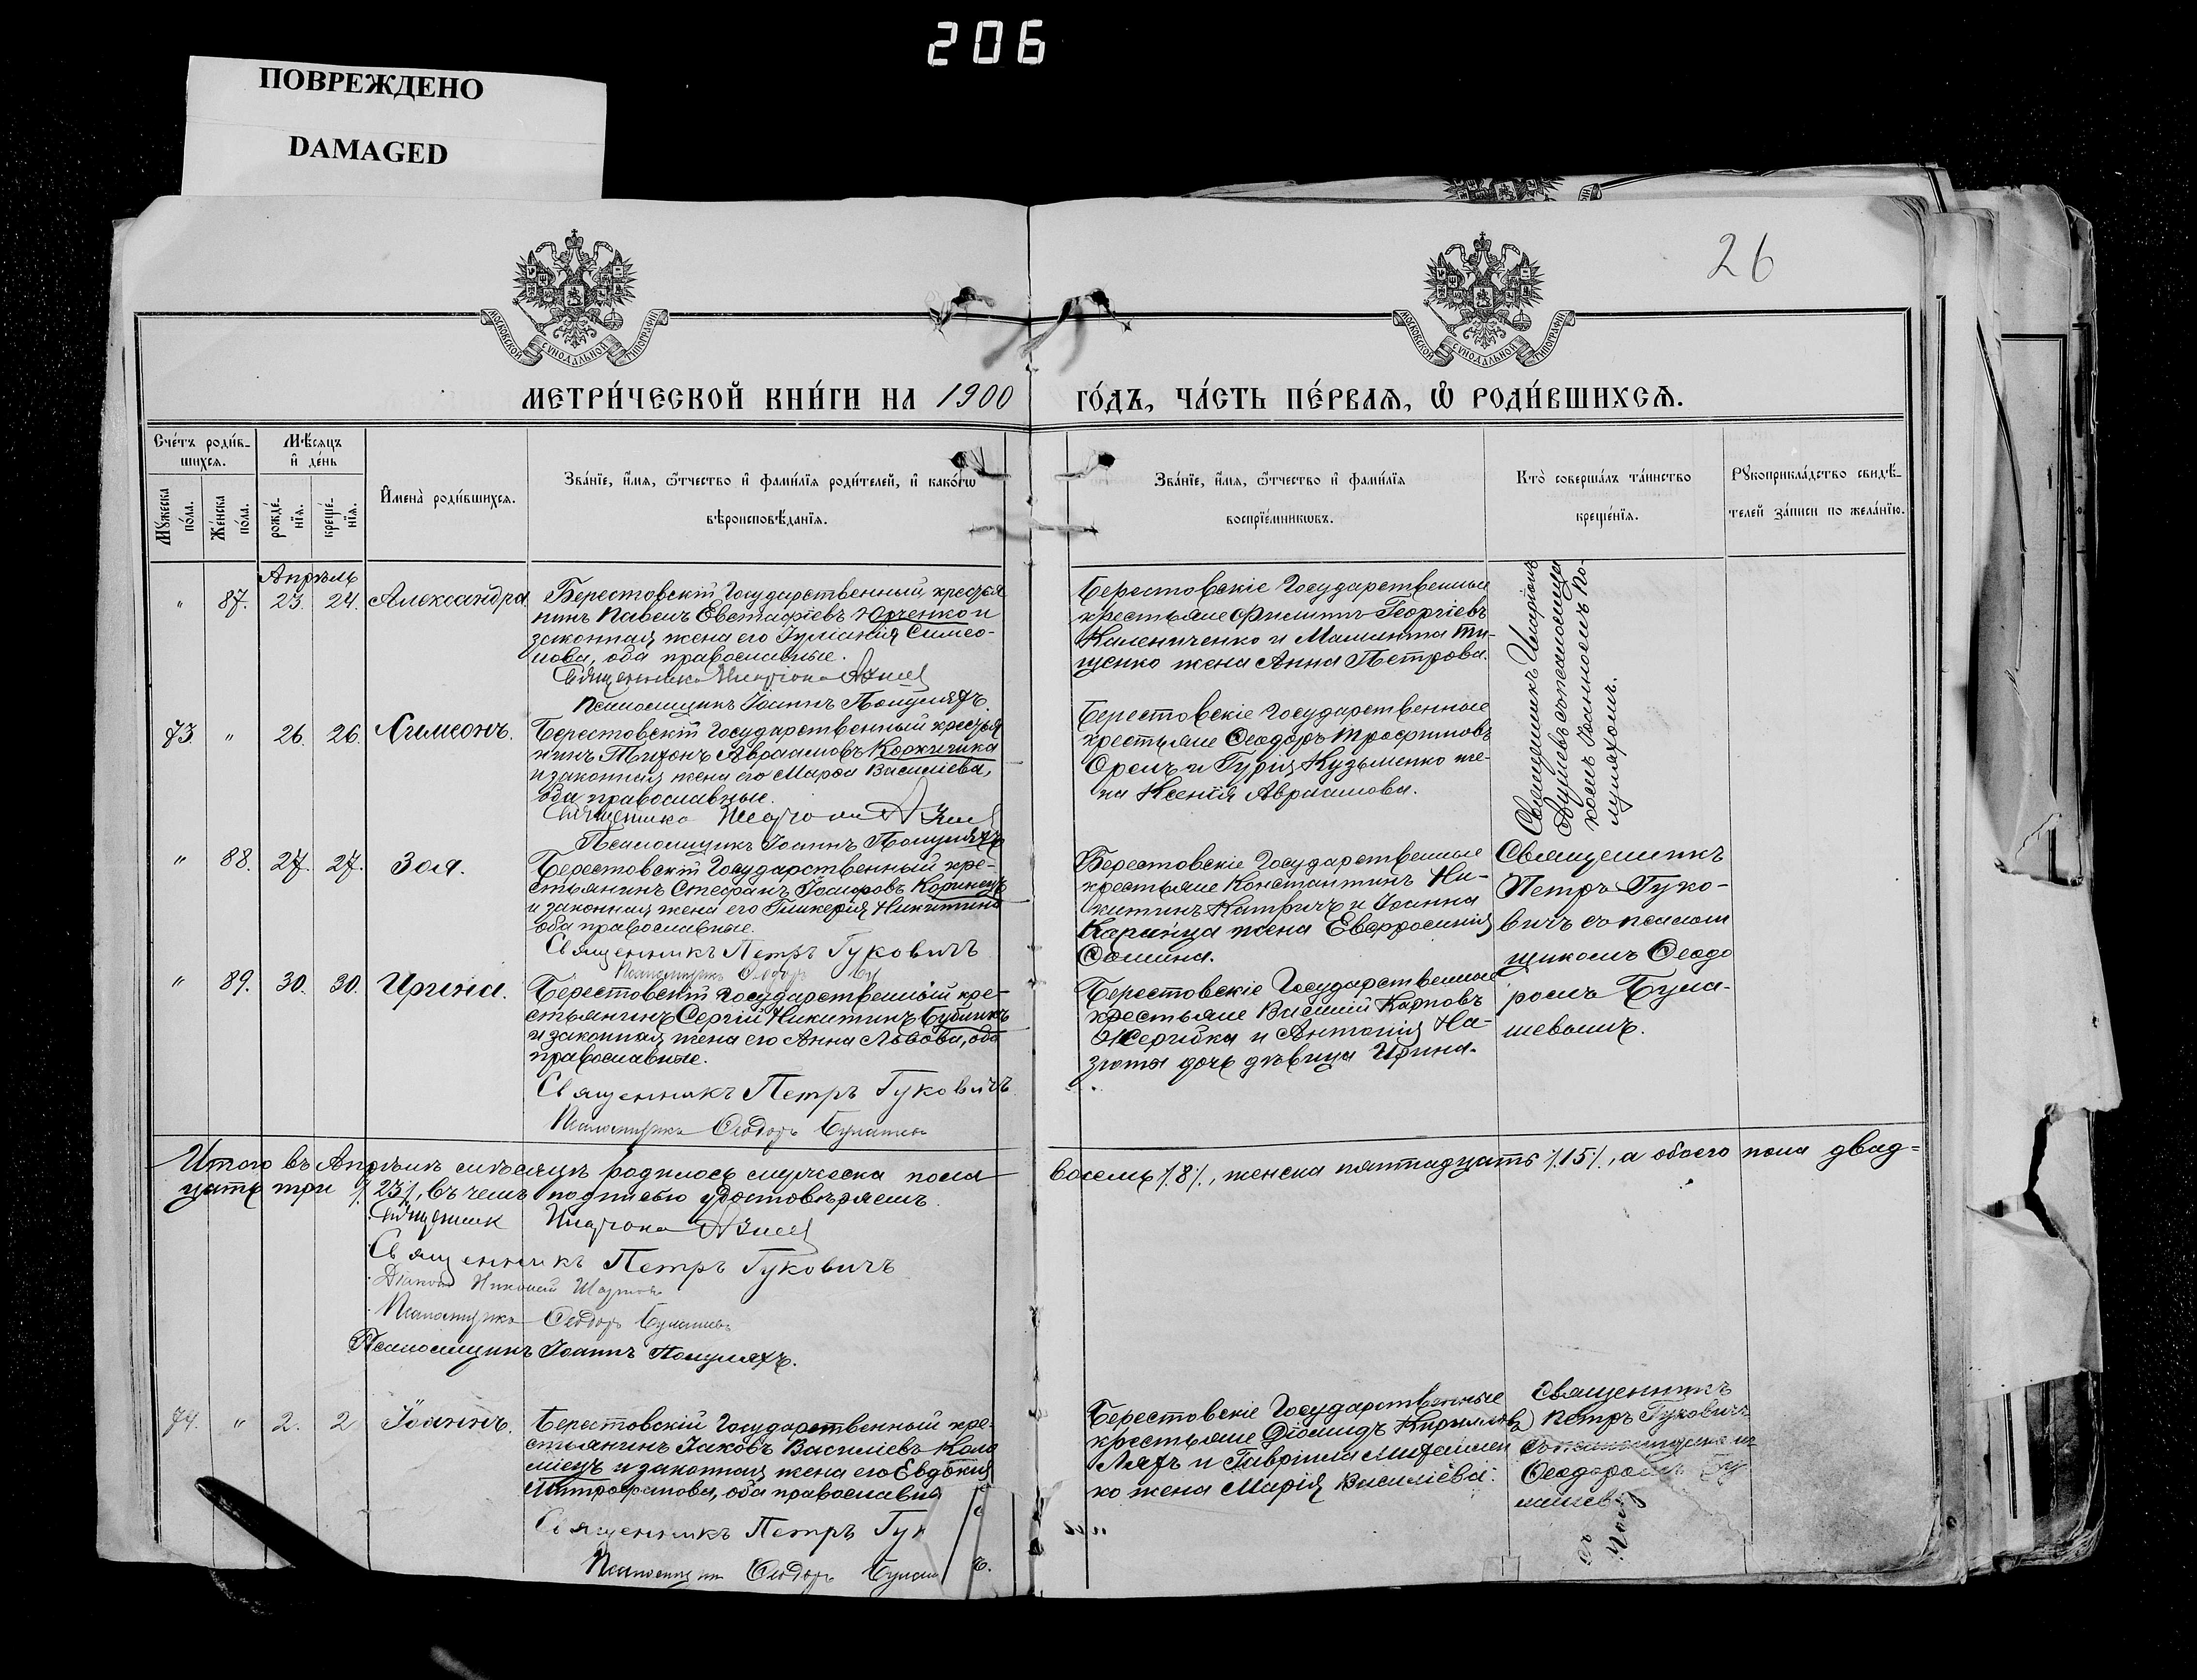 206
ПОВРЕЖДЕНО
DAMAGED
26
МОСКОВСКОЙ СѴНОДАЛЬНОЙ ТИПОГРАФІИ
МОСКОВСКОЙ СѴНОДАЛЬНОЙ ТИПОГРАФІИ
МЕТРИ́ЧЕСКОЙ КНИ́ГИ НА 1900 ГО́ДЪ, ЧА́СТЬ ПЕ́РВАѦ, Ѽ РОДИ́ВШИХСѦ.
Счétъ роди́в-
шихсѧ.
Мѹжеска по́ла.
Же́нска по́ла.
Мѣ́сѧцъ
и҆ де́нь
рожде́-
нїѧ.
креще́-
нїѧ.
И҆мена̀ роди́вшихсѧ.
Зва́нїе, и҆́мѧ, ѻ҆́тчество и҆ фами́лїѧ роди́телей, и҆ како́гѡ
вѣроисповѣ́данїѧ.
Зва́нїе, и҆́мѧ, ѻ҆́тчество и҆ фами́лїѧ
воспрїе́мникѡвъ.
Кто̀ соверша́лъ та́инство
креще́нїѧ.
Рѹкоприкла́дство свидѣ́-
телей за́писи по жела́нїю.
Апрѣль
" 87. 23. 24. Александра
Берестовскій Государственный крестья
нинъ Павелъ Евстафіевъ Юрченко и
законная жена его Іуліанія Симео-
нова, оба православные.
Священникъ Иларіонъ
Псаломщикъ Іоаннъ Полуляхъ.
Берестовскіе Государственные
крестьяне Филиппъ Георгіевъ
Калениченко и Маманта Ти-
щенко жена Анна Петрова.
Священникъ Иларіонъ
съ псаломщи
комъ Іоанномъ По-
луляхомъ.
73. " 26. 26. Симеонъ.
Берестовскій Государственный крестья
нинъ Тихонъ Авраамовъ Коржичка
и законная жена его Марѳа Василіева,
оба православные.
Священникъ Иларіонъ
Псаломщикъ Іоаннъ Полуляхъ
Берестовскіе Государственные
крестьяне Ѳеодоръ Трофимовъ
Орелъ и Гурія Кузьменко же-
на Ксенія Авраамова.
" 88. 27. 27. Зоя.
Берестовскій Государственный кре-
стьянинъ Стефанъ Іосифовъ Коринецъ
и законная жена его Гликерія Никитина
оба православные.
Священникъ Петръ Гуковичъ
Псаломщикъ Ѳеодоръ
Берестовскіе Государственные
крестьяне Константинъ Ни-
китинъ и Іоанна
Каринца жена Евфросинія
Ѳомина.
Священникъ
Петръ Гуко-
вичъ съ псалом
щикомъ Ѳеодо
ромъ Була-
шевымъ.
" 89. 30. 30. Ирина.
Берестовскій Государственный кре-
стьянинъ Сергій Никитинъ Бубликъ
и законная жена его Анна Львова, оба
православные.
Священникъ Петръ Гуковичъ
Псаломщикъ Ѳеодоръ Булашевъ
Берестовскіе Государственные
крестьяне Василій Карповъ
Жерибка и Антонія На-
зюты дочь дѣвица Ирина.
Итого въ Апрѣлѣ мѣсяцѣ родилось мужеска пола восемь /.8/., женска пятнадцать /.15/., а обоего пола двад-
цать три /.23/., въ чемъ подписью удостовѣряемъ.
Священникъ Иларіонъ
Священникъ Петръ Гуковичъ
Діаконъ Николай
Псаломщикъ Ѳеодоръ Булашевъ
Псаломщикъ Іоаннъ Полуляхъ.
74. " 2. 2 Іоаннъ.
Берестовскій Государственный кре-
стьянинъ Іаковъ Василіевъ Коло
міецъ и законная жена его Евдокія
Митрофанова, оба православны
Священникъ Петръ Гук
Псаломщикъ Ѳеодоръ Булаш
Берестовскіе Государственные
крестьяне Діомидъ Кириловъ
Ляхъ и Гавріила Михайлен
ко жена Марія Василіева.
Священникъ
Петръ Гуковичъ
Ѳеодоромъ Бу
лашев